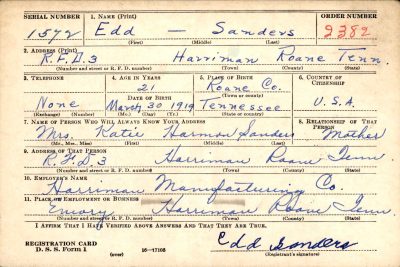 SERIAL NUMBER 1. NAME (Print) ORDER NUMBER
1572 Edd — Sanders 2382
(First) (Middle) (Last)
2. ADDRESS (Print)
R.F.D.3 Harriman Roane Tenn.
(Number and street or R. F. D. number) (Town) (County) (State)
3. TELEPHONE 4. AGE IN YEARS 5. PLACE OF BIRTH 6. COUNTRY OF CITIZENSHIP
21 Roane Co.
DATE OF BIRTH (Town or county)
None March 30 1919 Tennessee U.S.A.
(Exchange) (Number) (Mo.) (Day) (Yr.) (State or country)
7. NAME OF PERSON WHO WILL ALWAYS KNOW YOUR ADDRESS 8. RELATIONSHIP OF THAT PERSON
Mrs. Katie Harmon Sanders Mother
(Mr., Mrs., Miss) (First) (Middle) (Last)
9. ADDRESS OF THAT PERSON
R.F.D.3 Harriman Roane Tenn
(Number and street or R. F. D. number) (Town) (County) (State)
10. EMPLOYER'S NAME
Harriman Manufacturing Co
11. PLACE OF EMPLOYMENT OR BUSINESS
Emory Harriman Roane Tenn.
(Number and street or R. F. D. number) (Town) (County) (State)
I AFFIRM THAT I HAVE VERIFIED ABOVE ANSWERS AND THAT THEY ARE TRUE.
REGISTRATION CARD
D. S. S. Form 1 (over) 16—17105
Edd Sanders
(Registrant's signature)